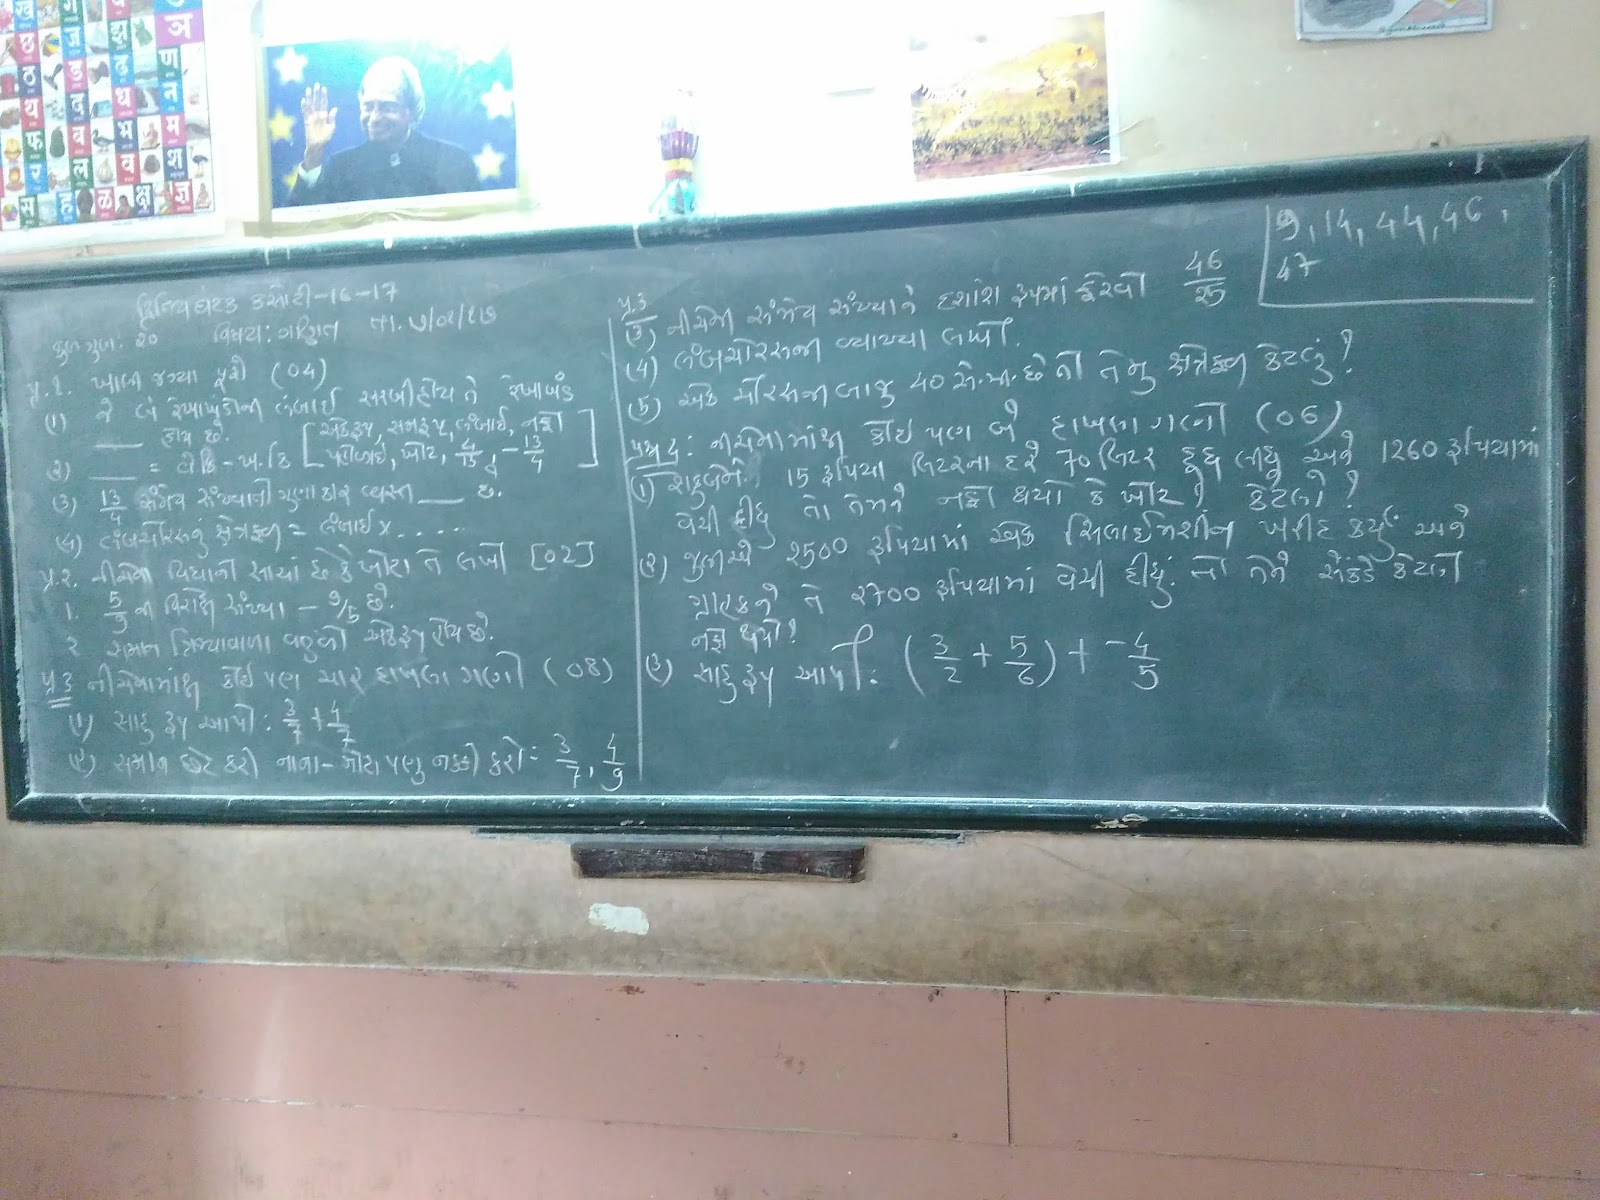 દ્વિતિય ઘટક કસોટી-16-17
કુલ ગુણ: ૨૦ વિષય: ગણિત તા.
પ્ર.૧. ખાલી જગ્યા પૂરો (04)
(1) જે બે રેખાખંડોની લંબાઈ સરખી હોય તે રેખાખંડ
___ હોય છે. [એકરૂપ, સમરૂપ, લંબાઈ, નફો
૨) ___ = વે.કિ - ખ.કિ પહોળાઈ, ખોટ, 4/13, -13/4]
(3) 13/4 સંમેય સંખ્યાનો ગુણાકાર વ્યસ્ત ___ છે.
(૪) લંબચોરસનું ક્ષેત્રફળ = લંબાઈ x . . . . .
પ્ર.૨. નીચેના વિધાનો સાચાં છે કે ખોટા તે લખો [02]
1. 5/9 ની વિરોધી સંખ્યા - 9/5 છે.
૨ સમાન ત્રિજ્યાવાળા વર્તુળો એકરૂપ હોય છે.
પ્ર૩ નીચેનામાંથી કોઈ પણ ચાર દાખલા ગણો (08)
(૧) સાદુ રૂપ આપો: 3/7 + 4/7
(૨) સમાન છેદ કરી નાના-મોટા પણુ નક્કી કરો: 3/7, 4/9
પ્ર.૩
(3) નીચેની સંમેય સંખ્યાને દશાંશ રૂપમાં ફેરવો 46/25
(4) લંબચોરસની વ્યાખ્યા લખો.
(5) એક ચોરસની બાજુ 40 સે.મી. છે તો તેનુ ક્ષેત્રફળ કેટલું?
પ્રશ્ન 4: નીચેનામાંથી કોઈ પણ બે દાખલા ગણો (06)
(૧) 15 રૂપિયા લિટરના દરે 70 લિટર દૂધ લીધુ અને 1260 રૂપિયામાં
વેચી દીધુ તો તેમને નફો થયો કે ખોટ? કેટલો?
(૨) ૨500 રૂપિયામાં એક સિલાઈ મશીન ખરીદ કર્યું અને
ગ્રાહકને તે ૨700 રૂપિયામાં વેચી દીધું. તો તેને સેંકડે કેટલો
નફો થયો?
(૩) સાદુ રૂપ આપો: (3/2 + 5/6) + -4/5
9, 14, 44, 46,
47